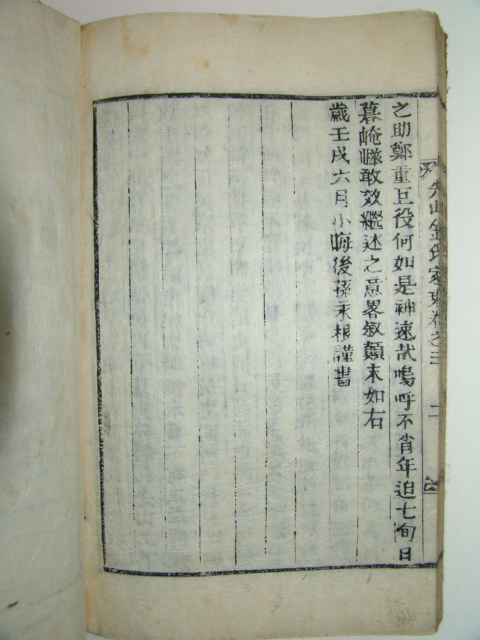 之助鄭重巨役何如是神速哉嗚呼不肖年迫七旬日
暮崦嵫敢效繼述之意畧敍顚末如右
歲壬戌六月小晦後孫永根謹書
金氏家史卷之三
二